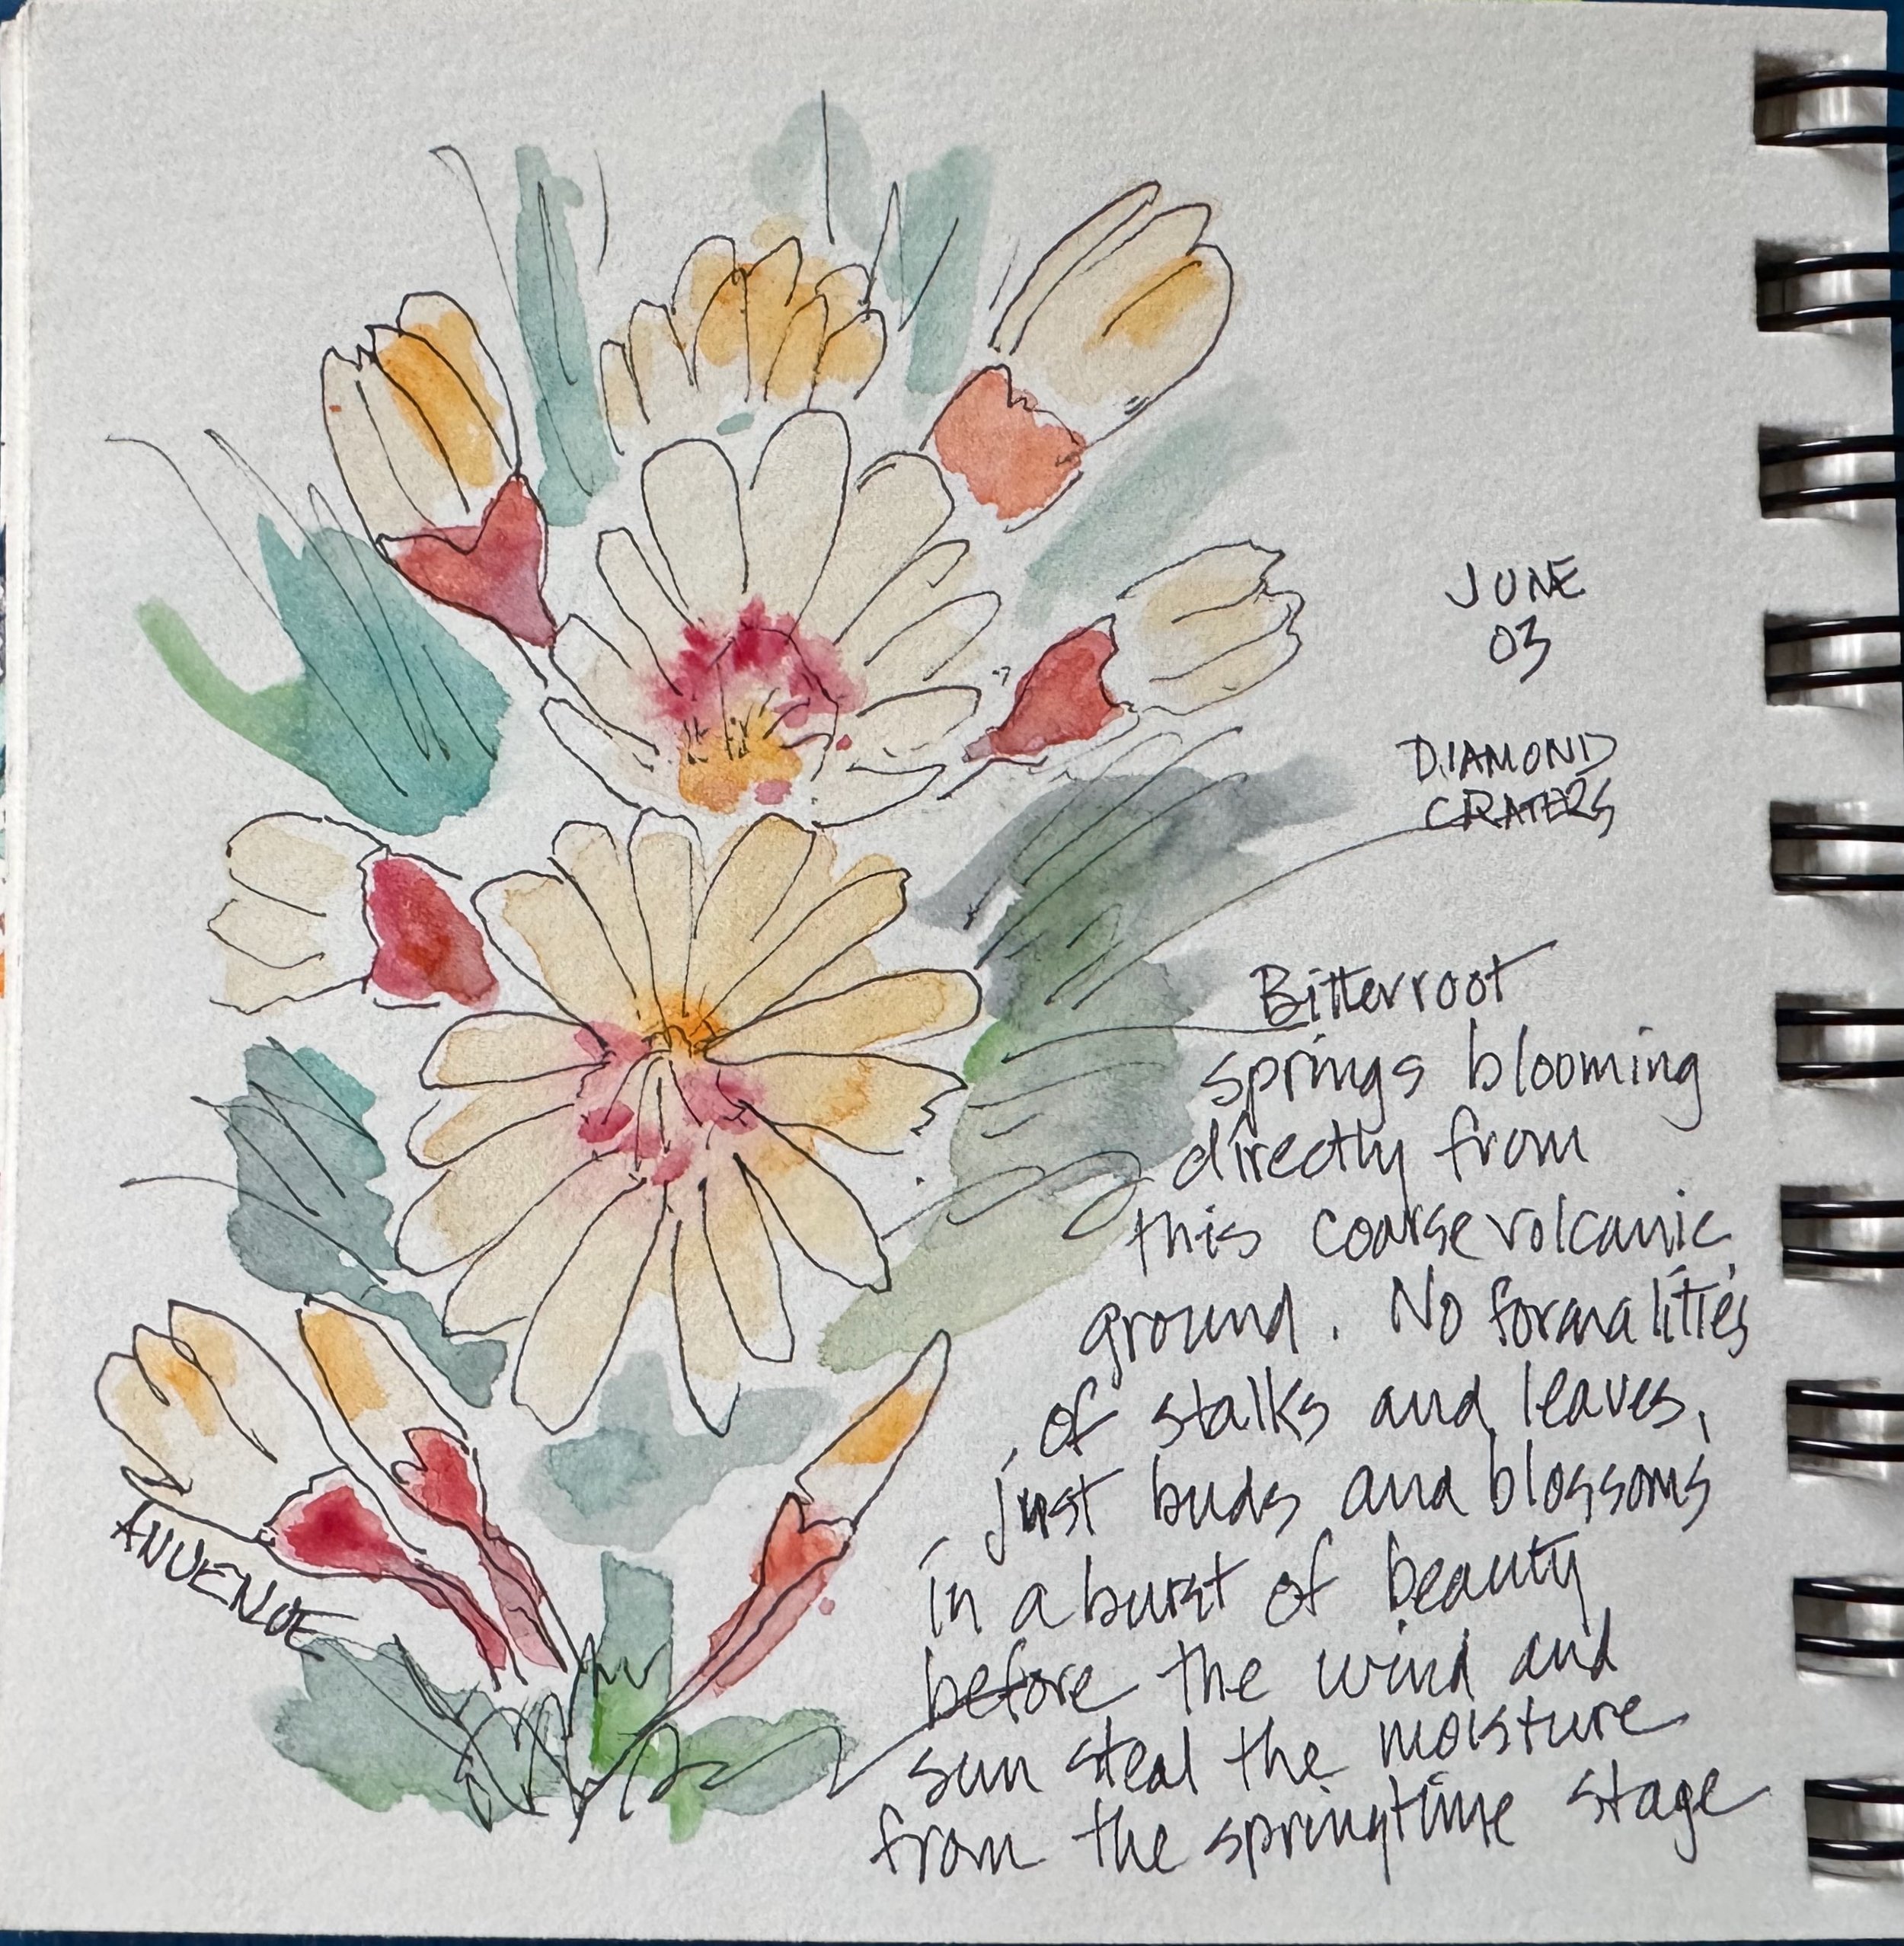 JUNE
03
DIAMOND
CRATERS
Bitterroot
springs blooming
directly from
this coarse volcanic
ground. No formalities
of stalks and leaves,
just buds and blossoms
in a burst of beauty
before the wind and
sun steal the moisture
from the springtime stage